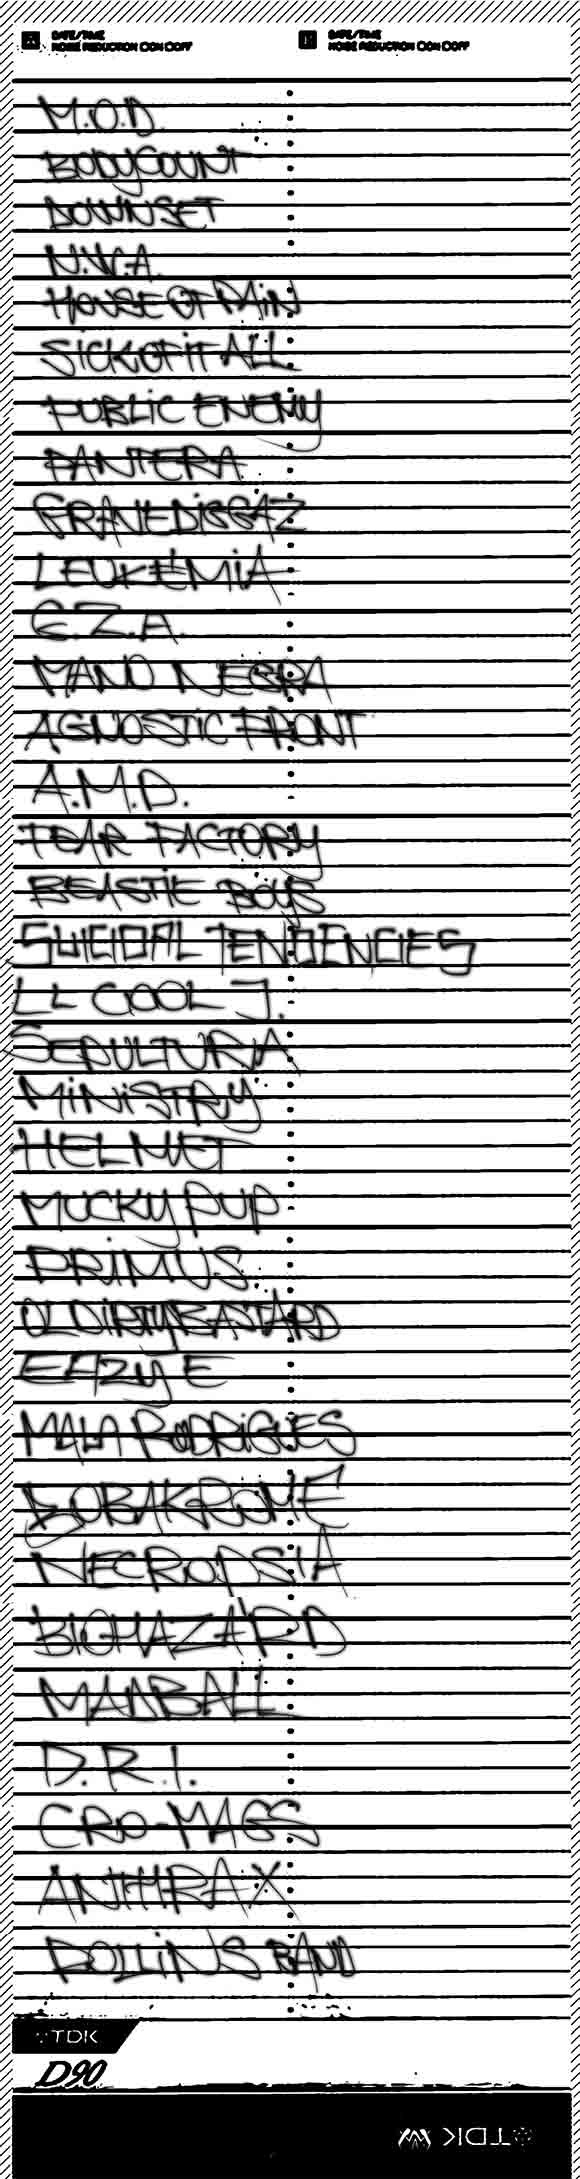 A DATE/TIME
NOISE REDUCTION ON OFF
B DATE/TIME
NOISE REDUCTION ON OFF
M.O.D.
BODYCOUNT
DOWNSET
N.W.A.
HOUSE OF PAiN
SiCK OF iT ALL
PUBLiC ENEMY
PANTERA
GRAVEDiGGAZ
LEUKEMiA
G.Z.A.
MANO NEGRA
AGNOSTiC FRONT
A.M.D.
FEAR FACTORY
BEASTiE BOYS
SUICIDAL TENDENCIES
LL COOL J.
SEPULTURA
MiNiSTRY
HELMET
MUCKY PUP
PRiMUS
OL DiRTY BASTARD
EAZY E
MALA RODRiGUES
BOBAKROME
NECROPSiA
BIOHAZARD
MADBALL
D.R.I.
CRO-MAGS
ANTHRAX
ROLLiNS BAND
TDK
D90
TDK